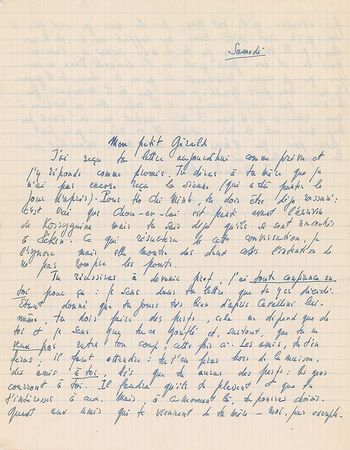 Samedi
Mon petit Gérald
J'ai reçu ta lettre aujourd'hui comme prévu et
j'y réponds comme promis. Tu diras à ta mère que je
n'ai pas encore reçu la sienne (qui a dû partir le
jour d'après). Pour Ho Chi Minh, tu dois être déjà rassuré:
c'est vrai que Chou-en-lai est parti avant l'arrivée
de Kossyguine mais tu sais déjà qu'ils se sont rencontrés
à Pékin. Ce qui résultera de cette conversation, je
l'ignore mais elle montre des deux côtés l'intention de
ne pas rompre les ponts.
Tu réussiras à devenir prof, j'ai toute confiance en
toi pour ça: je sens dans ta lettre que tu y es décidé.
Étant donné que tu joues très bien d'après Cavallini lui-
même, tu dois faire des perfs, cela ne dépend que de
toi et je sens que tu es gonflé et, surtout, que tu ne
veux pas rater ton coup cette fois-ci. Les amis, tu t'en
feras, il faut attendre: tu t'en feras hors de la maison,
des amis à toi, dès que tu auras des perfs: les gens
courront à toi. Il faudra qu'ils te plaisent et que tu
t'intéresses à eux. Mais, à ce moment-là, tu pourras choisir.
Quant aux amis qui te viennent de ta mère – moi, par exemple